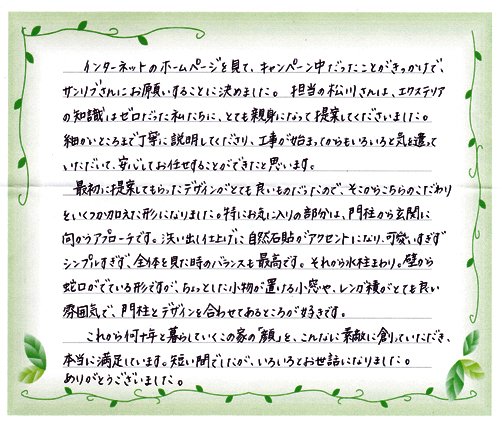 インターネットのホームページを見て、キャンペーン中だったことがきっかけで、
サンリブさんにお願いすることに決めました。 担当の松川さんは、エクステリア
の知識はゼロだった私たちに、とても親身になって提案してくださいました。
細かいところまで丁寧に説明してくださり、工事が始まってからもいろいろと気を遣って
いただいて、安心してお任せすることができたと思います。
最初に提案してもらったデザインがとても良いものだったので、そこからこちらのこだわり
をいくつか加えた形になりました。特にお気に入りの部分は、門柱から玄関に
向かうアプローチです。洗い出し仕上げに自然石貼がアクセントになり、可愛いすぎず
シンプルすぎず、全体を見た時のバランスも最高です。それから水栓まわり。壁から
蛇口がでている形ですが、ちょっとした小物が置ける小窓や、レンガ積がとても良い
雰囲気で、門柱とデザインを合わせてあるところが好きです。
これから何十年と暮らしていくこの家の「顔」を、こんなに素敵に創っていただき、
本当に満足しています。短い間でしたが、いろいろとお世話になりました。
ありがとうございました。